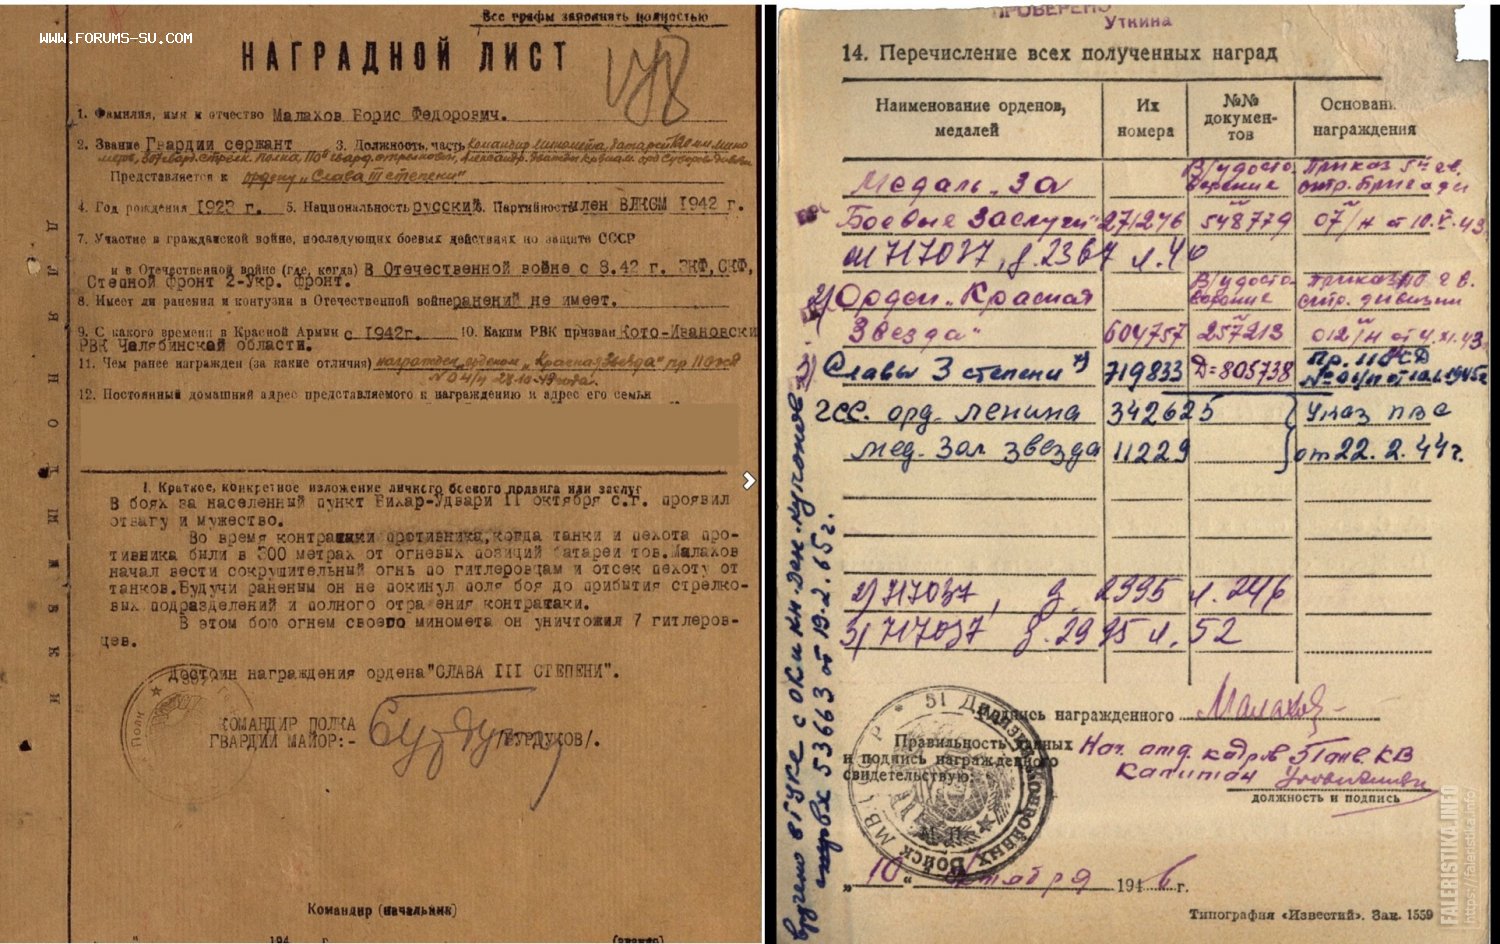 Все графы заполнять полностью
WWW.FORUMS-SU.COM
НАГРАДНОЙ ЛИСТ
1. Фамилия, имя и отчество Малахов Борис Федорович.
2. Звание Гвардии сержант 3. Должность, часть Командир миномета, батареи 120 мм мино
Представляется к ордену „Слава III степени"
4. Год рождения 1923 г. 5. Национальность русский 6. Партийность член ВЛКСМ 1942 г.
7. Участие в гражданской войне, последующих боевых действиях по защите СССР
и в Отечественной войне (где, когда) В Отечественной войне с 8.42 г. ЗКФ, СКФ,
Степной фронт 2-Укр. фронт.
8. Имеет ли ранения и контузии в Отечественной войне ранений не имеет.
9. С какого времени в Красной Армии с 1942г. 10. Каким РВК призван Кото-Ивановски
РВК Челябинской области.
11. Чем ранее награжден (за какие отличия) награжден орденом „Красная Звезда" пр 110гксд
12. Постоянный домашний адрес представляемого к награждению и адрес его семьи
I. Краткое, конкретное изложение личного боевого подвига или заслуг
В боях за населенный пункт Бихар-Удвари II октября с.г. проявил
отвагу и мужество.
Во время контратаки противника, когда танки и пехота про-
тивника были в 300 метрах от огневых позиций батареи тов. Малахов
начал вести сокрушительный огнь по гитлеровцам и отсек пехоту от
танков. Будучи раненым он не покинул поля боя до прибытия стрелко-
вых подразделений и полного отражения контратаки.
В этом бою огнем своего миномета он уничтожил 7 гитлеров-
цев.
Достоин награждения ордена "СЛАВА III СТЕПЕНИ".
КОМАНДИР ПОЛКА
ГВАРДИИ МАЙОР:- /БУРДУКОВ/.
Командир (начальник)
194 г. (звание)
ДЛЯ ПОДШИВКИ
ПРОВЕРЕНО
Уткина
14. Перечисление всех полученных наград
Наименование орденов, медалей
Их номера
№№ докумен-тов
Основан награждения
Медаль „За В/удосто Приказ 5й гв.
верение стр. бригады
Боевые Заслуги" 271276 548779 07/н от 10.V.43
оп 717037, д. 2367 л. 40
2) Орден „Красная В/удосто Приказ 110 гв.
верение стр. дивизии
Звезда" 604757 257213 012/н от 4.XI.43
3) Славы 3 степени 719833 Д=805738 Пр. 110 КСД
гсс. орд. Ленина 342625 Указ ПВС
мед. Зол звезда 11229 от 22.2.44г.
2) 717037, д. 2995 л. 246
3) 717037 д. 2995 л. 52
Подпись награжденного Малахов
Правильность данных
и подпись награжденного
свидетельствую:
Нач. отд. кадров 51 див. КВ
Капитан
должность и подпись
51 Дивизия Конвойных Войск МВД СССР
М.П.
„10" октября 1946 г.
Типография «Известий». Зак. 1559
53663 от 19.2.65г.
FALERISTIKA.INFO
https://faleristika.info/